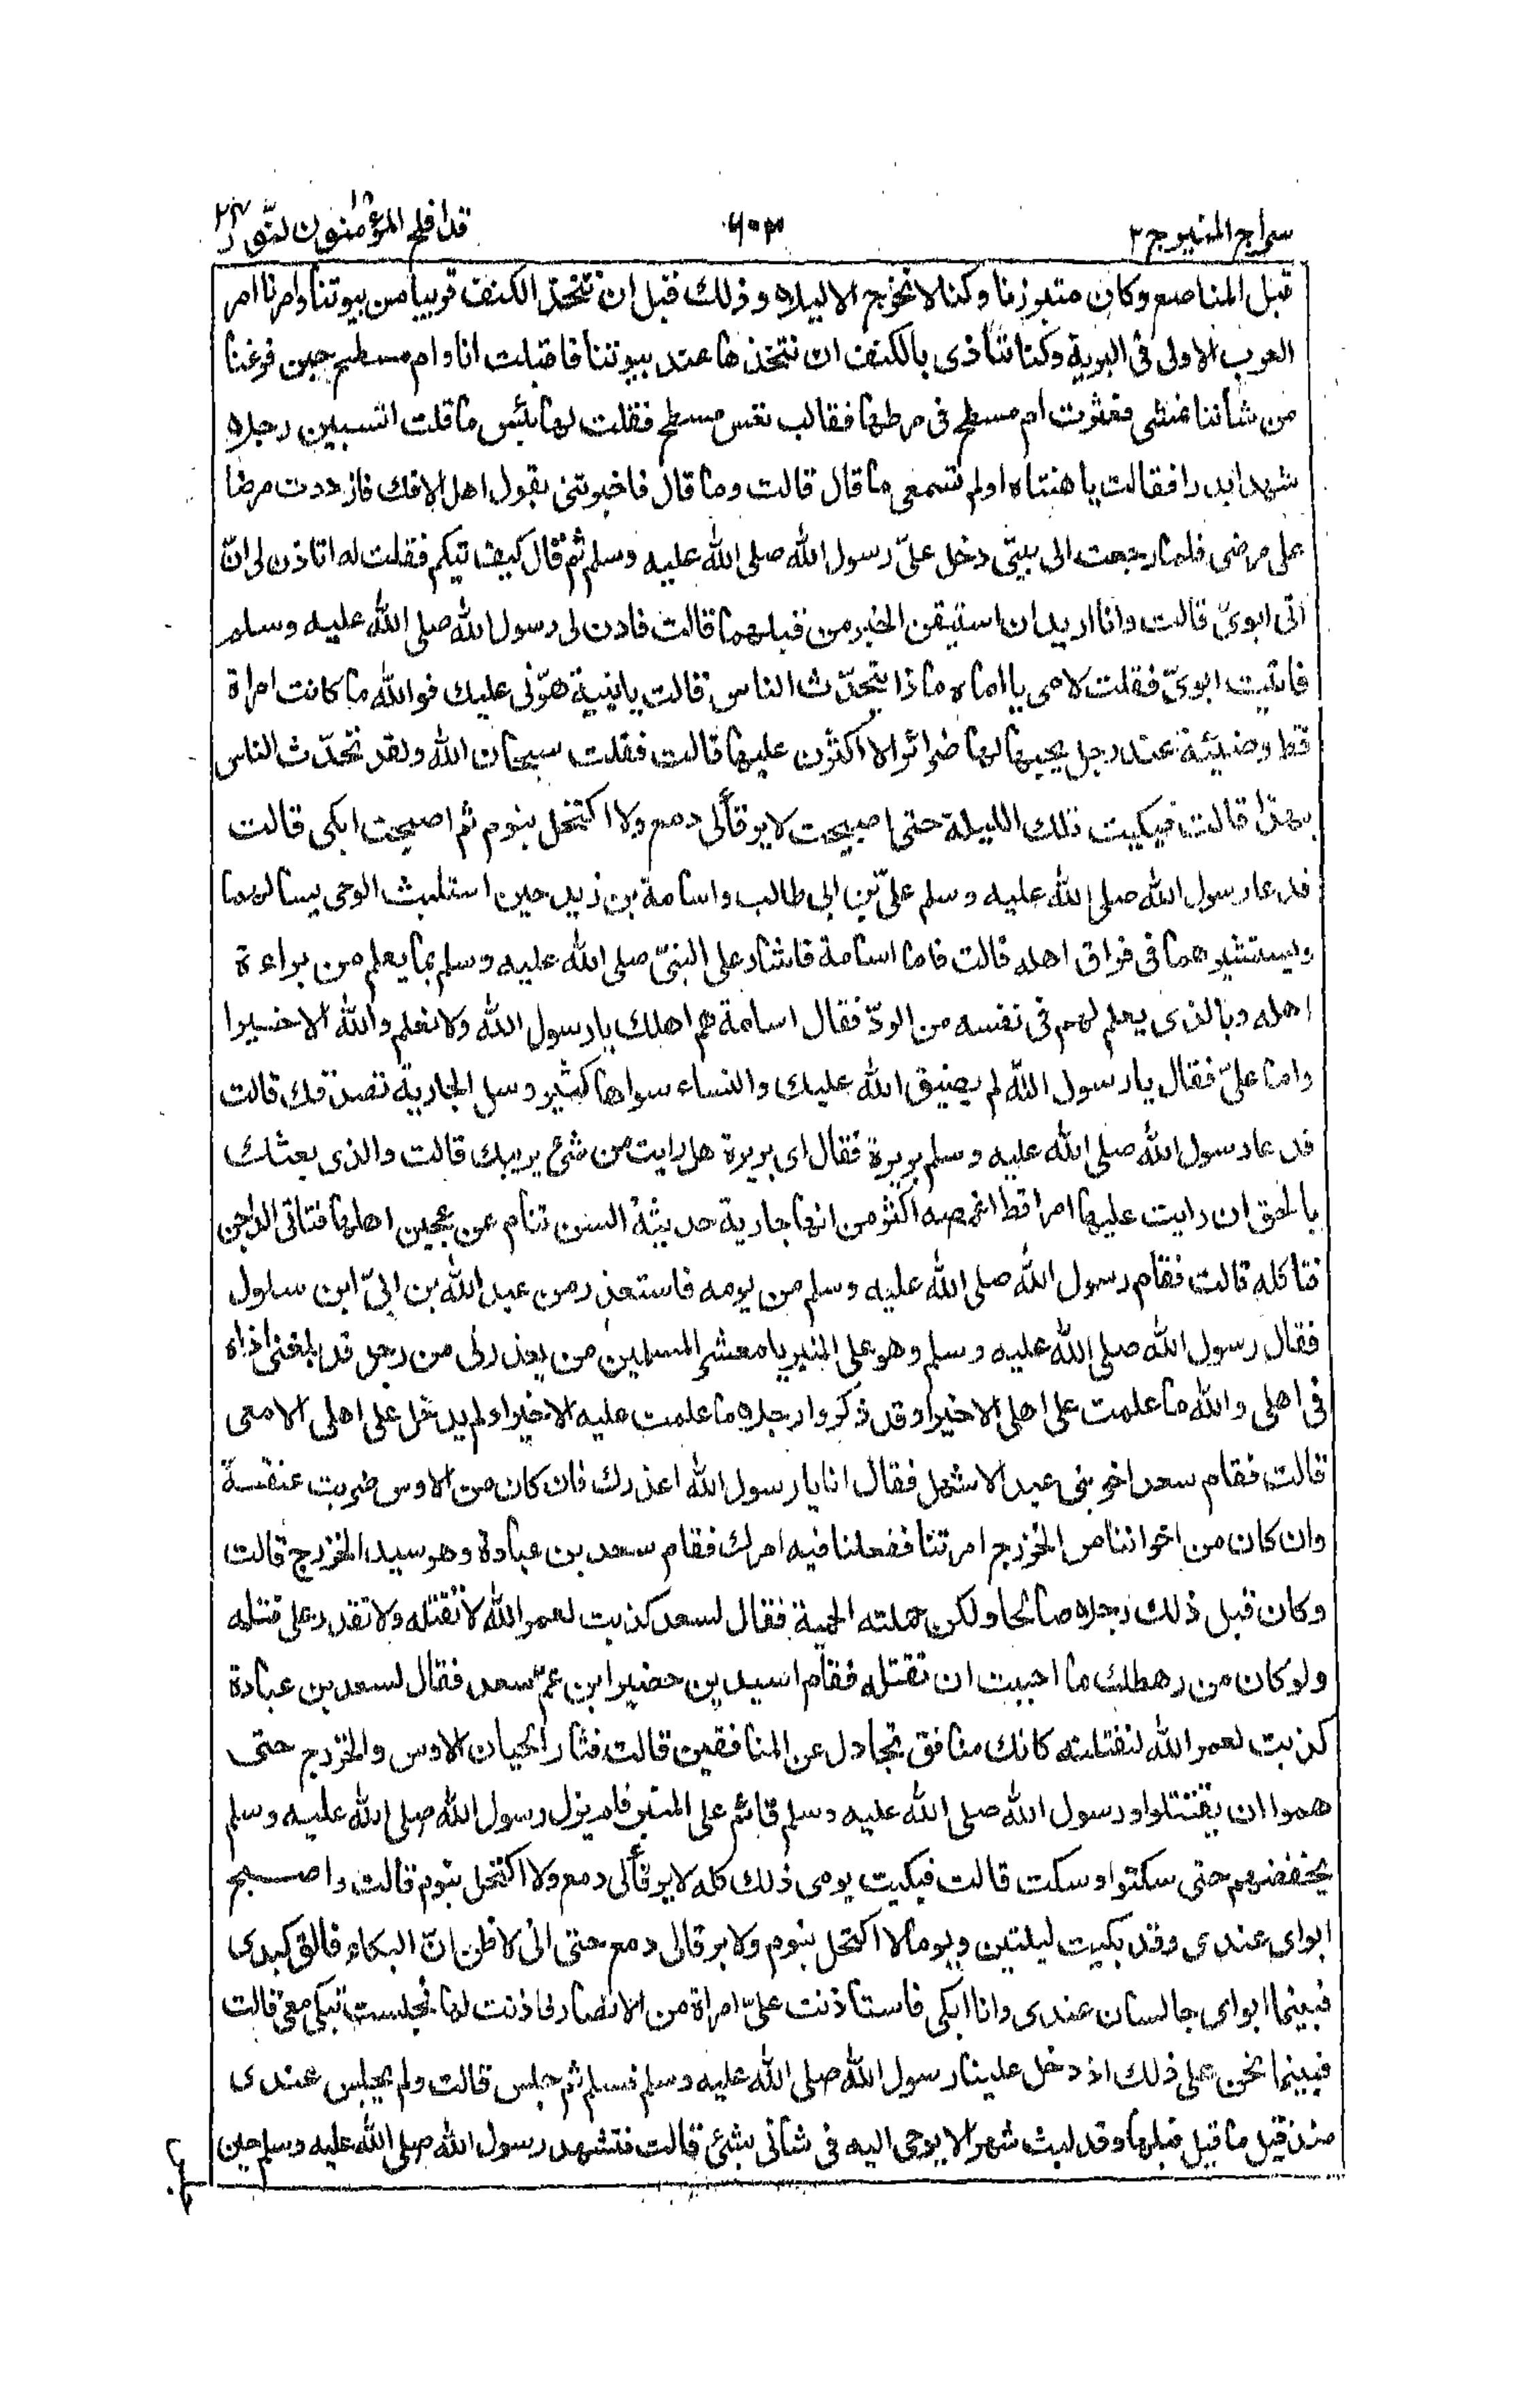 سراج المنير ج ٣ ٦٠٣ قد افلح المؤمنون ١٨ النّور ٢٤
قبل المناصع وكان متبرزنا وكنا لا نخرج الا ليلا وذلك قبل ان نتخذ الكنف قريبا من بيوتنا وامرنا امر
العرب الاولى فى البرية وكنا نتأذى بالكنف ان نتخذها عند بيوتنا فاقبلت انا وام مسطح حين فرغنا
من شأننا نمشى فعثرت ام مسطح فى مرطها فقالت تعس مسطح فقلت لها بئس ما قلت اتسبين رجلا
شهد بدرا فقالت يا هنتاه اولم تسمعى ما قال قالت وما قال فاخبرتنى بقول اهل الافك فازددت مرضا
على مرضى فلما رجعت الى بيتى دخل علىّ رسول الله صلى الله عليه وسلم ثم قال كيف تيكم فقلت له اتاذن لى انّ
اٰتى ابوىّ قالت وانا اريد ان استيقن الخبر من قبلهما قالت فاذن لى رسول الله صلى الله عليه وسلم
فاتيت ابوىّ فقلت لامى يا اماه ماذا يتحدّث الناس قالت يا بنية هوّنى عليك فوالله ما كانت امراة
قط وضيئة عند رجل يحبها لها ضرائر الا اكثرن عليها قالت فقلت سبحان الله ولقد تحدّث الناس
بهذا قالت فبكيت تلك الليلة حتى اصبحت لا يرقأ لى دمع ولا اكتحل بنوم ثم اصبحت ابكى قالت
فدعا رسول الله صلى الله عليه وسلم علىّ بن ابى طالب واسامة بن زيد حين استلبث الوحى يسالهما
ويستشيرهما فى فراق اهله قالت فاما اسامة فاشار على النبىّ صلى الله عليه وسلم بما يعلم من براءة
اهله وبالذى يعلم لهم فى نفسه من الودّ فقال اسامة هم اهلك يا رسول الله ولا نعلم والله الا خيرا
واما علىّ فقال يا رسول الله لم يضيق الله عليك والنساء سواها كثير وسل الجارية تصدقك قالت
فدعا رسول الله صلى الله عليه وسلم بريرة فقال اى بريرة هل رايت من شئ يريبك قالت والذى بعثك
بالحق ان رايت عليها امرا قط اغمصه اكثر من انها جارية حديثة السن تنام عن عجين اهلها فتاتى الداجن
فتاكله قالت فقام رسول الله صلى الله عليه وسلم من يومه فاستعذر من عبد الله بن ابىّ ابن سلول
فقال رسول الله صلى الله عليه وسلم وهو على المنبر يا معشر المسلمين من يعذرنى من رجل قد بلغنى اذاه
فى اهلى والله ما علمت على اهلى الا خيرا وقد ذكروا رجلا ما علمت عليه الا خيرا ولم يدخل على اهلى الا معى
قالت فقام سعد اخو بنى عبد الاشهل فقال انا يا رسول الله اعذرك فان كان من الاوس ضربت عنقه
وان كان من اخواننا من الخزرج امرتنا ففعلنا فيه امرك فقام سعد بن عبادة وهو سيد الخزرج قالت
وكان قبل ذلك رجلا صالحا ولكن حملته الحمية فقال لسعد كذبت لعمر الله لا تقتله ولا تقدر على قتله
ولو كان من رهطك ما احببت ان تقتله فقام اسيد بن حضير ابن عمّ سعد فقال لسعد بن عبادة
كذبت لعمر الله لنقتلنه كانك منافق تجادل عن المنافقين قالت فثار الحيان الاوس والخزرج حتى
هموا ان يقتتلوا ورسول الله صلى الله عليه وسلم قائم على المنبر فلم يزل رسول الله صلى الله عليه وسلم
يخفضهم حتى سكتوا وسكت قالت فبكيت يومى ذلك كله لا يرقأ لى دمع ولا اكتحل بنوم قالت واصبح
ابواى عندى وقد بكيت ليلتين ويوما لا اكتحل بنوم ولا يرقا لى دمع حتى انى لاظن انّ البكاء فالق كبدى
فبينما ابواى جالسان عندى وانا ابكى فاستاذنت علىّ امراة من الانصار فاذنت لها فجلست تبكى معى قالت
فبينما نحن على ذلك اذ دخل علينا رسول الله صلى الله عليه وسلم فسلم ثم جلس قالت ولم يجلس عندى
منذ قيل ما قيل قبلها وقد لبث شهرا لا يوحى اليه فى شانى بشئ قالت فتشهد رسول الله صلى الله عليه وسلم حين